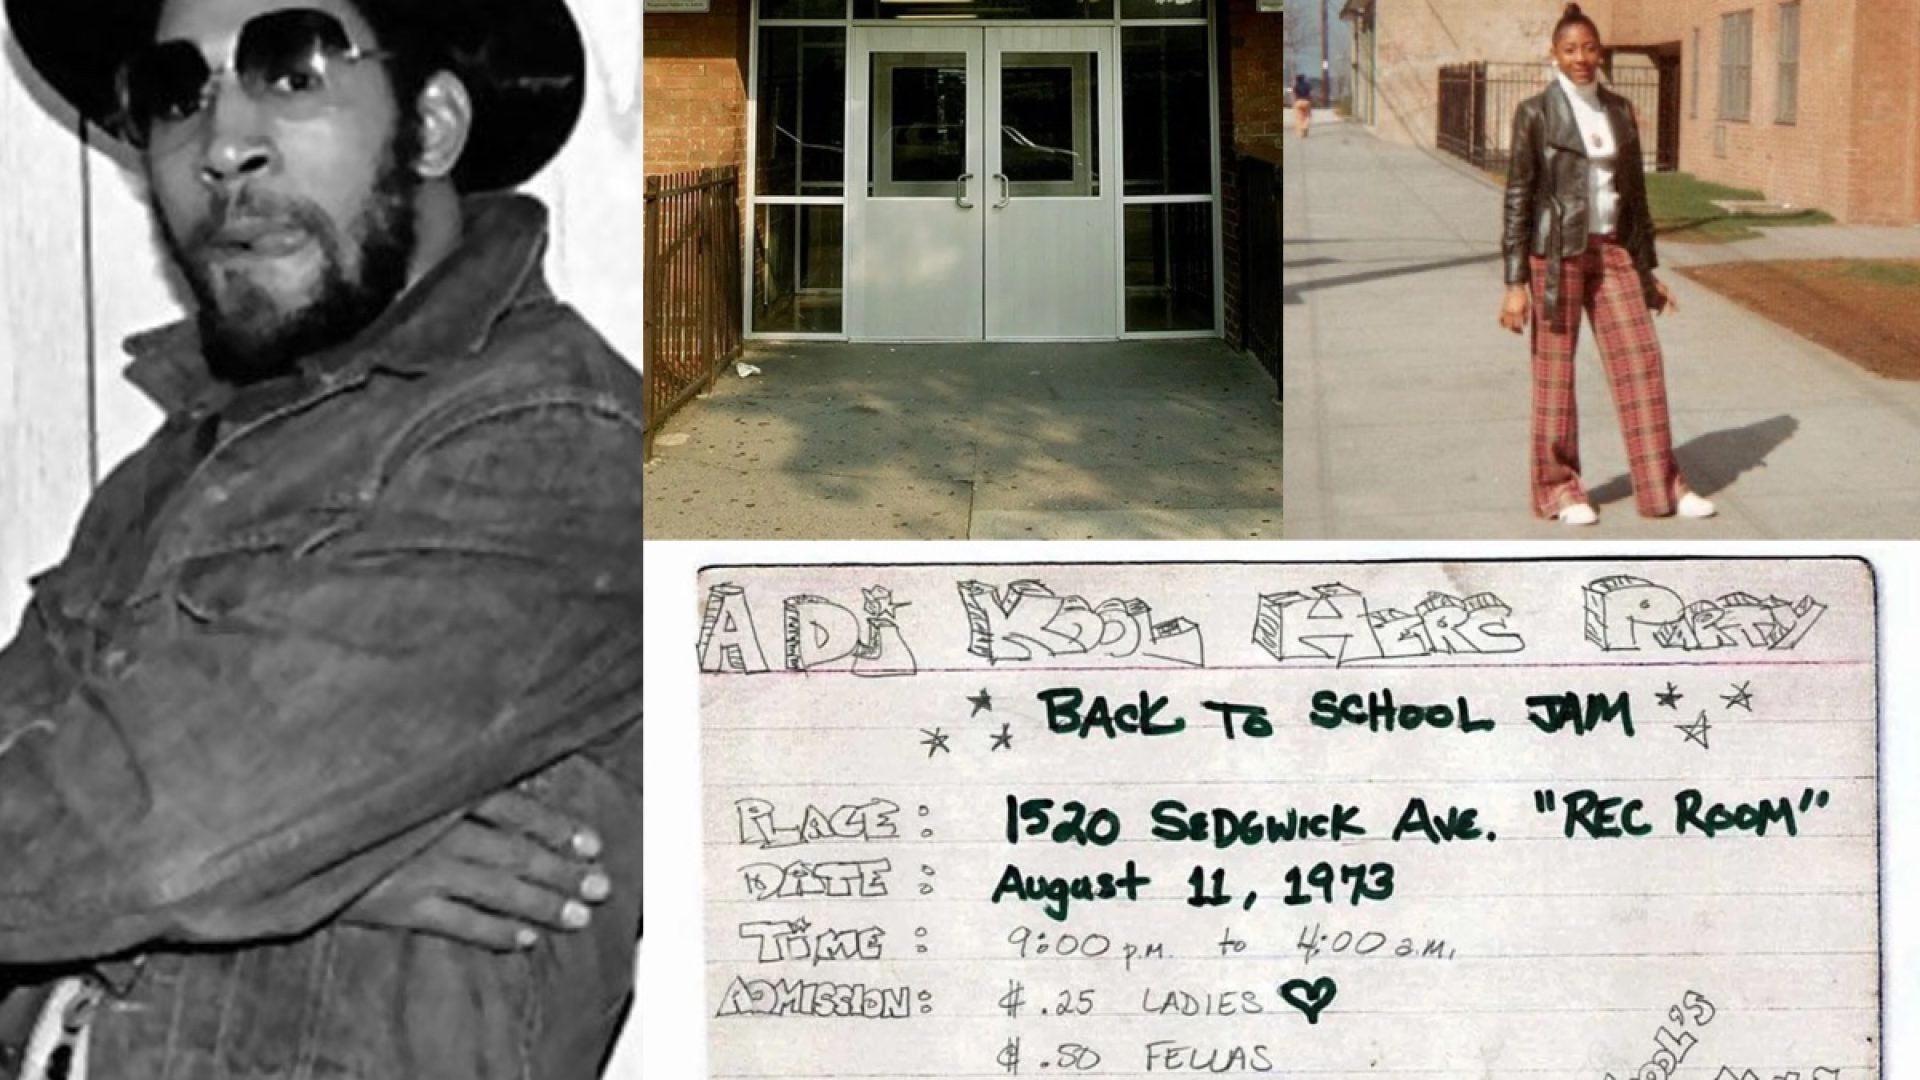 A DJ KOOL HERC PARTY
BACK TO SCHOOL JAM
PLACE: 1520 SEDGWICK AVE. "REC ROOM"
DATE: August 11, 1973
TIME: 9:00 p.m. to 4:00 a.m.
ADMISSION: $ .25 LADIES
$ .50 FELLAS